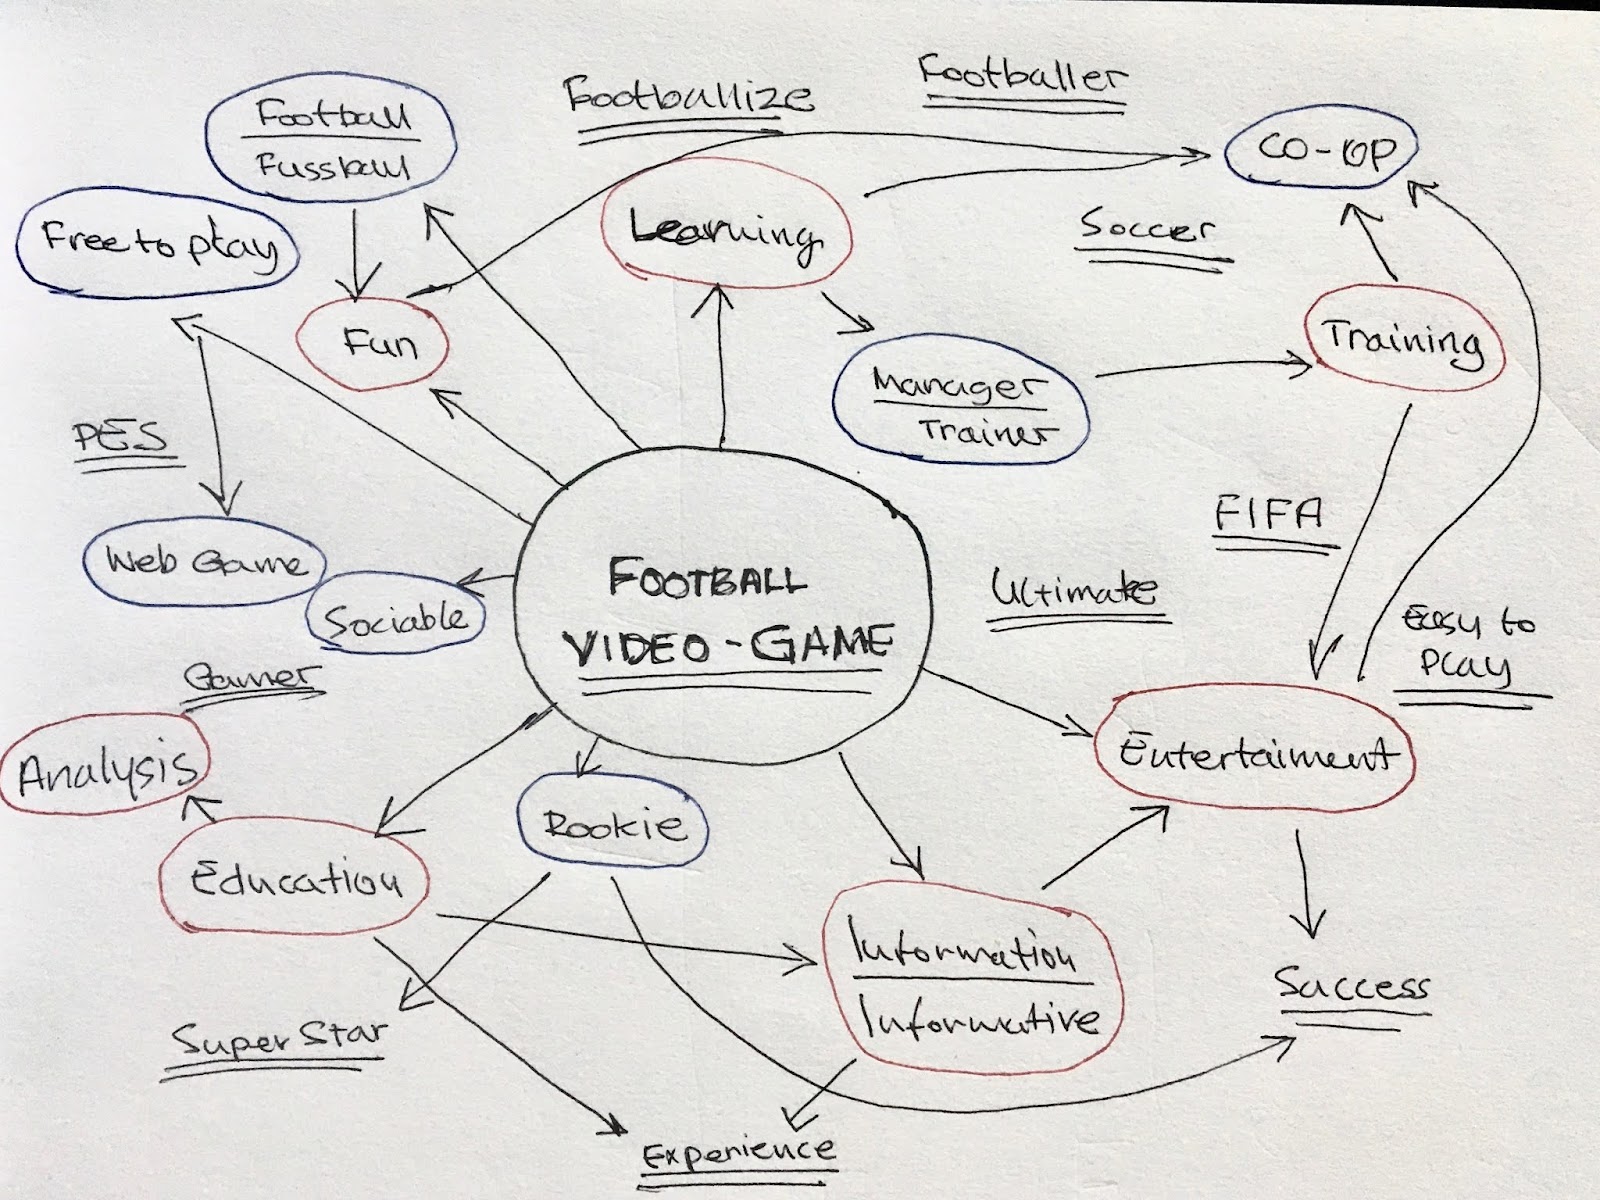 Footballer
Footballize
Football
Fussball
CO-OP
Free to play
Learning
Soccer
Fun
Training
Manager
Trainer
PES
FIFA
Web Game
FOOTBALL
VIDEO-GAME
Ultimate
Sociable
Easy to
Play
Gamer
Analysis
Entertaiment
Rookie
Education
Information
Informative
Success
Super Star
Experience